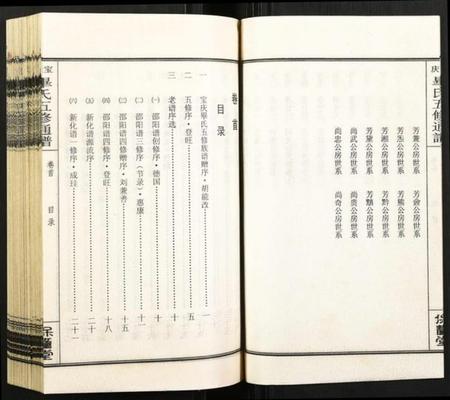 庆
畢氏五修通譜
芳兼公房世系
芳俞公房世系
芳丞公房世系
芳熊公房世系
芳湘公房世系
芳黔公房世系
芳黛公房世系
芳鷫公房世系
尚武公房世系
尚贵公房世系
尚忠公房世系
尚奇公房世系
保釐堂
卷首
目录
一 宝庆畢氏五修族谱赠序·胡能改……一
二 五修序·登旺……五
三 老谱序选
(一) 邵阳谱创修序·德国……十
(二) 邵阳谱三修序(节录)·惠康……十一
(三) 邵阳谱四修赠序·刘兼善……十五
(四) 邵阳谱四修序·登旺……十八
(五) 新化谱源流序……二十
(六) 新化谱一修序·成珪……二十一
宝
畢氏五修通譜
卷首
目录
保釐堂